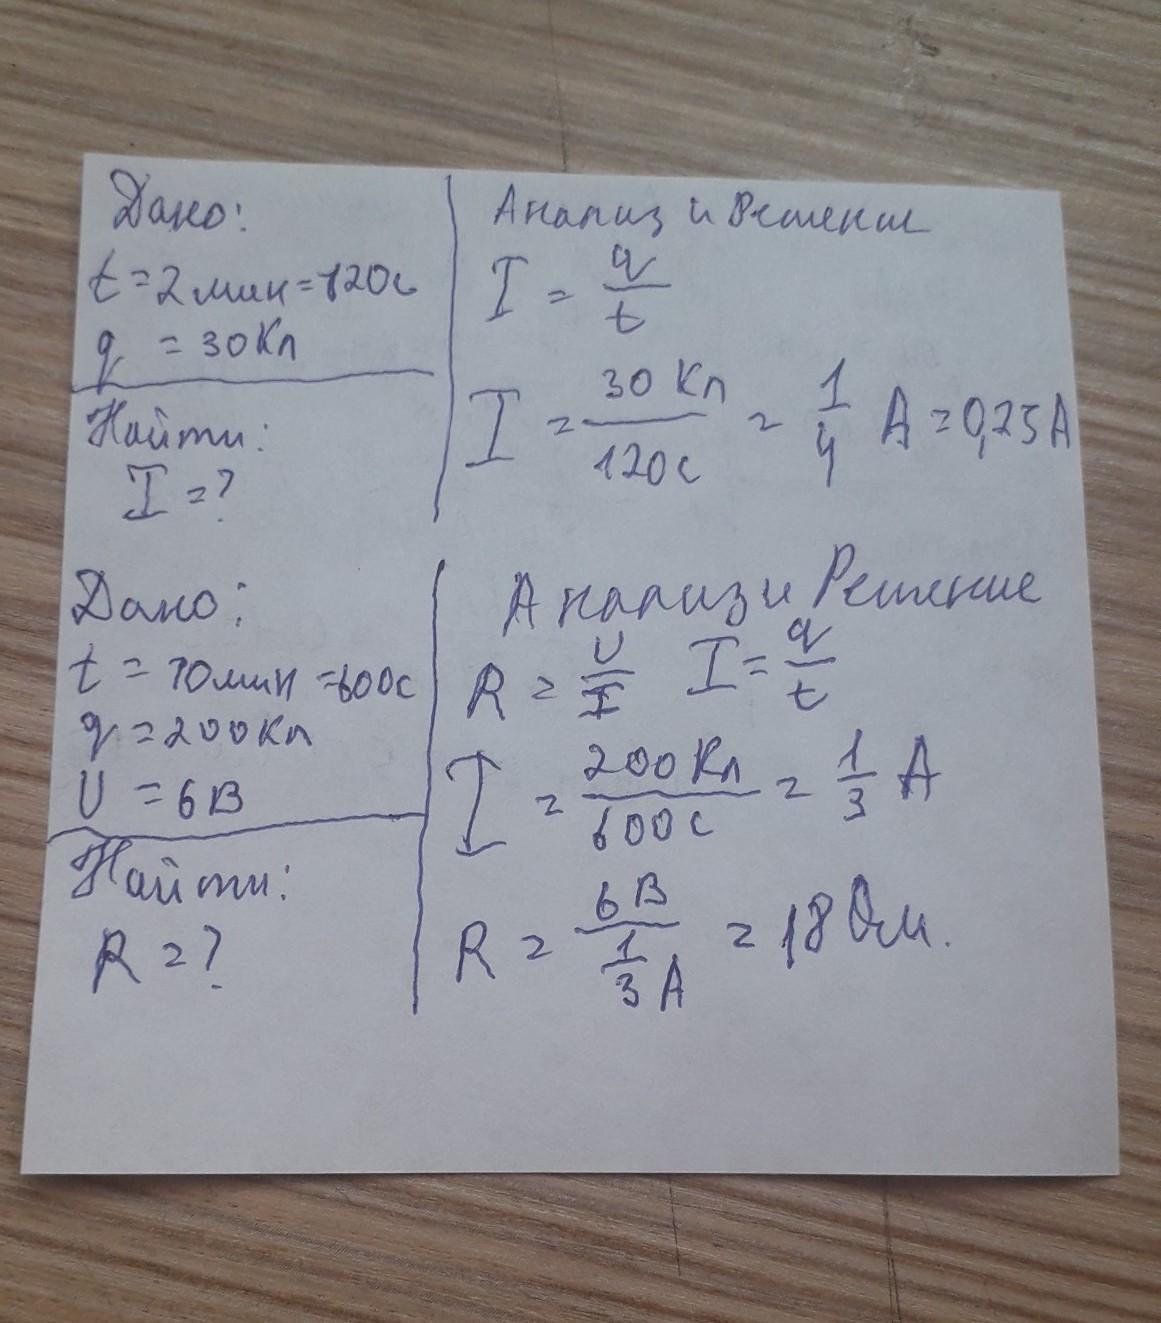 Дано:
t = 2 мин = 120 с
q = 30 Кл
Найти:
I = ?
Анализ и Решение
I = q/t
I = 30 Кл/120 с = 1/4 А = 0,25 А
Дано:
t = 10 мин = 600 с
q = 200 Кл
U = 6 В
Найти:
R = ?
Анализ и Решение
R = U/I I = q/t
I = 200 Кл/600 с = 1/3 А
R = 6 В/1/3 А = 18 Ом.